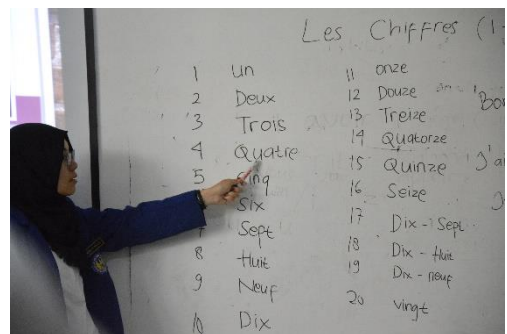 Les Chiffres (1-
1 un
2 Deux
3 Trois
4 Quatre
5 Cinq
Six
7 Sept
8 Huit
9 Neuf
10 Dix
11 onze
12 Douze
13 Treize
14 Quatorze
15 Quinze
16 Seize
17 Dix-Sept
18 Dix-Huit
19 Dix-neuf
20 vingt
J'ai